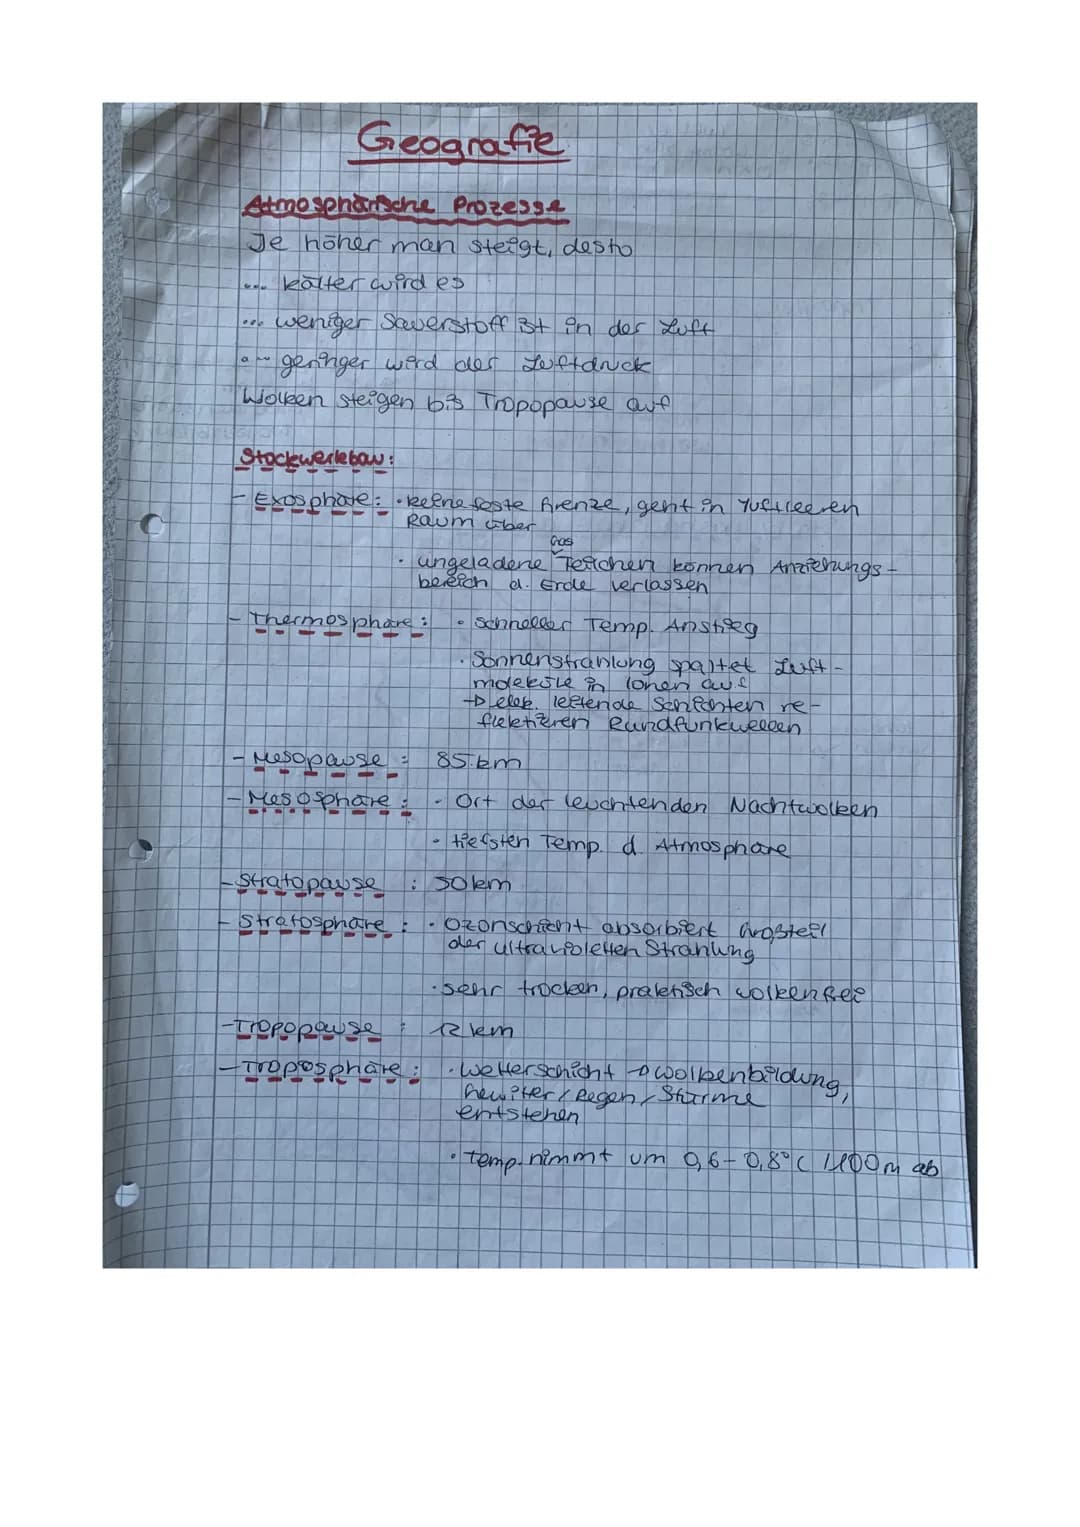 Geografie
Atmosphärische Prozesse
Je höher man steigt, desto
... kälter wird es
... weniger Sauerstoff ist in der Luft
... geringer wird der Luftdruck
Wolken steigen bis Tropopause auf
Stockwerkbau:
- Exosphäre: · keine feste Grenze, geht in luftleeren
Raum über
Gas
· ungeladene Teilchen können Anziehungs-
bereich d. Erde verlassen
- Thermosphäre: · schneller Temp. Anstieg
· Sonnenstrahlung spaltet Luft-
moleküle in Ionen auf
→ elek. leitende Schichten re-
flektieren Rundfunkwellen
- Mesopause: 85 km
- Mesosphäre: · Ort der leuchtenden Nachtwolken
· tiefsten Temp. d. Atmosphäre
- Stratopause: 50 km
- Stratosphäre: · Ozonschicht absorbiert Großteil
der ultravioletten Strahlung
· sehr trocken, praktisch wolkenfrei
- Tropopause: 12 km
- Troposphäre: · Wetterschicht → Wolkenbildung,
Gewitter, Regen, Stürme
entstehen
· Temp. nimmt um 0,6 - 0,8°C /100m ab